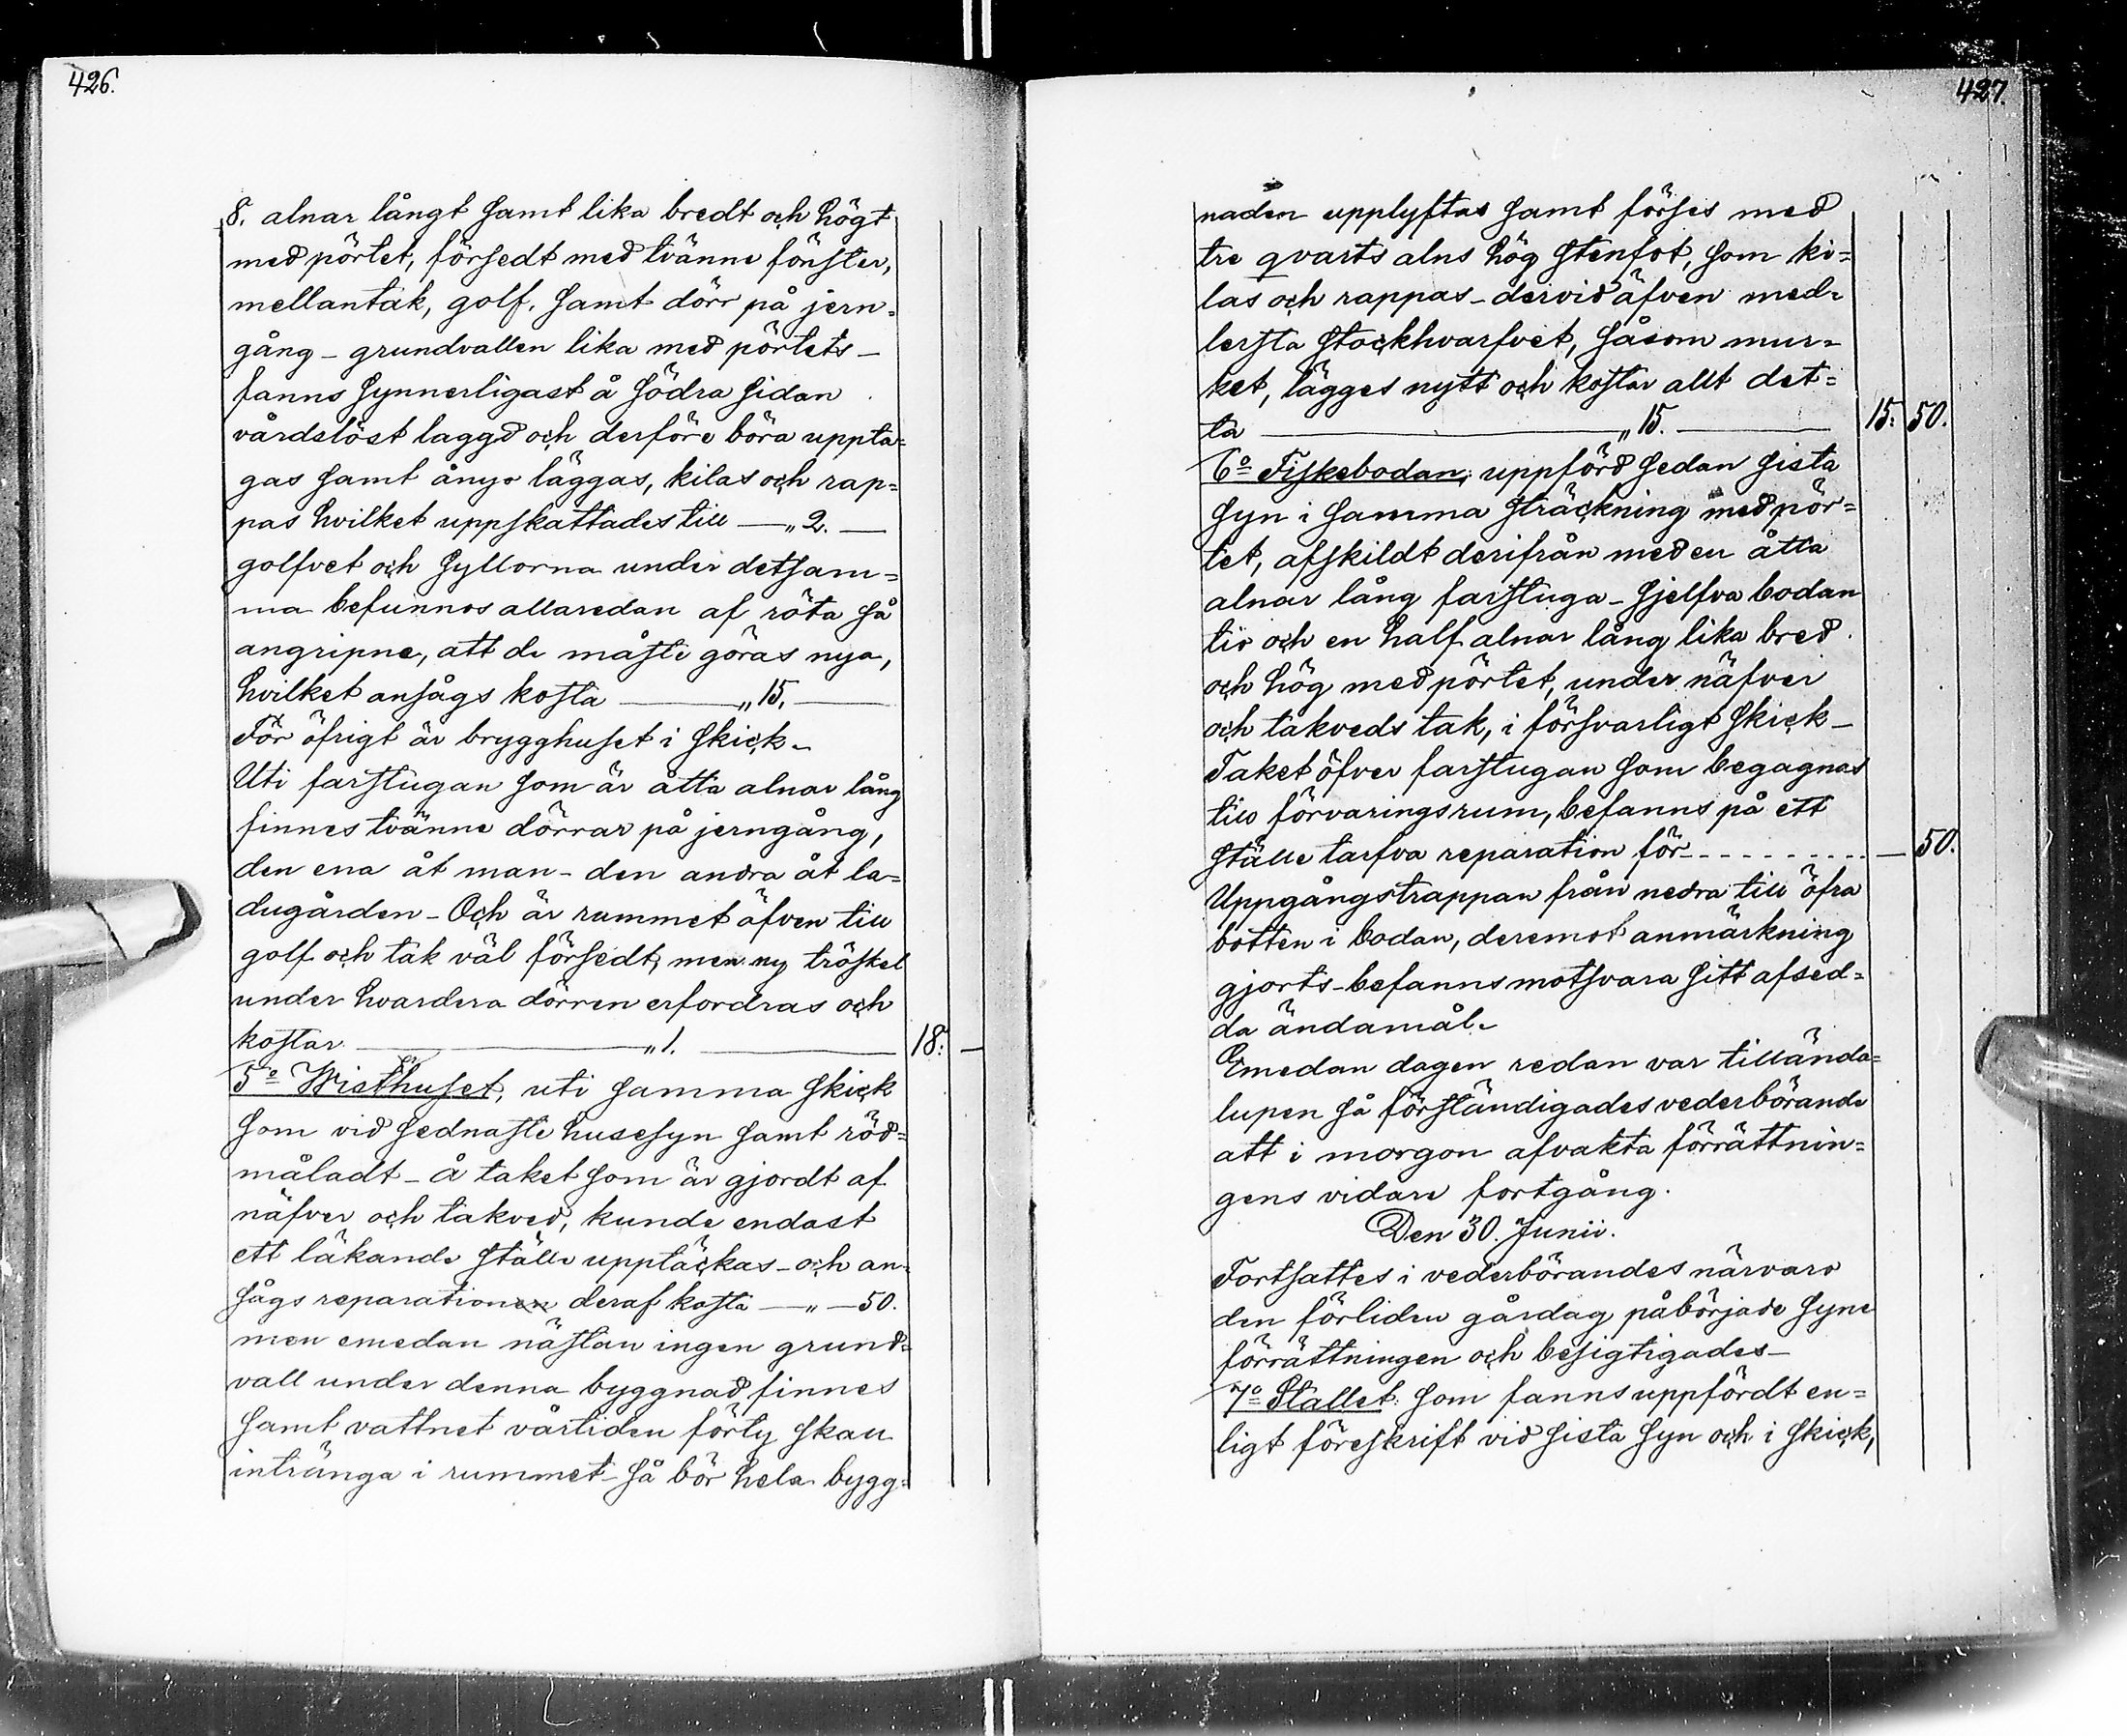 426.
8. alnar långt samt lika bredt och högt
med pörtet, försedt med tvänne fönster,
mellantak, golf, samt dörr på jern-
gång - grundvallen lika med pörtets -
fanns synnerligast å södra sidan
vårdslöst laggd och derföre böra uppta=
gas samt ånyo läggas, kilas och rap=
pas hvilket uppskattades till — „ 2. —
golfvet och syllorna under detsam=
ma befunnos allaredan af röta så
angripne, att de måste göras nya,
hvilket ansågs kosta — „ 15. —
För öfrigt är brygghuset i skick.
Uti farstugan som är åtta alnar lång
finnes tvänne dörrar på jerngång,
den ena åt man - den andra åt la=
dugården - Och är rummet äfven till
golf och tak väl försedt, men ny tröskel
under hvardera dörren erfordras och
kostar — „ 1. — 18: —
5o Wisthuset, uti samma skick
som vid sednaste husesyn samt röd=
måladt - å taket som är gjordt af
näfver och takved, kunde endast
ett läkande ställe upptäckas - och an=
sågs reparationen deraf kosta — „ — 50.
men emedan nästan ingen grund=
vall under denna byggnad finnes
samt vattnet vårtiden förty skall
intränga i rummet - så bör hela bygg=
427.
naden upplyftas samt förses med
tre qvarts alns hög stenfot, som ki=
las och rappas - dervid äfven med=
lersta stockhvarfvet, såsom mur=
ket, lägges nytt och kostar allt det=
ta — „ 15. — 15: 50.
6o Fiskebodan; uppförd sedan sista
syn i samma sträckning med pör=
tet, afskildt derifrån med en åtta
alnar lång farstuga - sjelfva bodan
tio och en half alnar lång lika bred
och hög med pörtet, under näfver
och takveds tak, i försvarligt skick -
Taket öfver farstugan som begagnas
till förvaringsrum, befanns på ett
ställe tarfva reparation för - - - - - - - - - — 50.
Uppgångstrappan från nedra till öfra
botten i bodan, deremot anmärkning
gjorts - befanns motsvara sitt afsed=
da ändamål.
Emedan dagen redan var tillända=
lupen så förständigades vederbörande
att i morgon afvakta förrättnin=
gens vidare fortgång.
Den 30. Junii.
Fortsattes i vederbörandes närvaro
den förliden gårdag påbörjade syne
förrättningen och besigtigades -
7o Stallet som fanns uppfördt en=
ligt föreskrift vid sista syn och i skick,